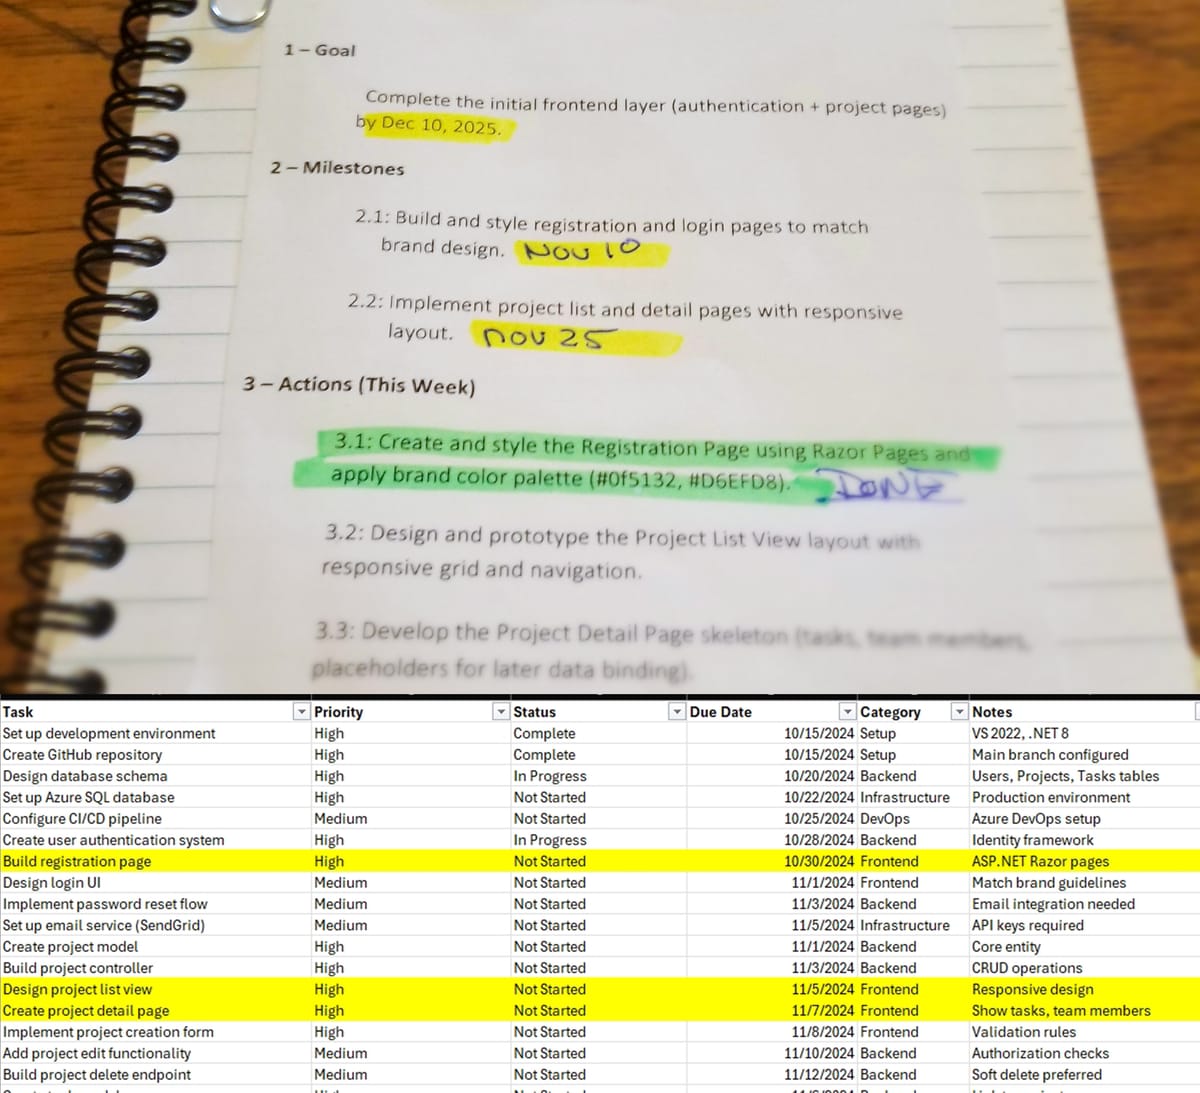 1 – Goal
Complete the initial frontend layer (authentication + project pages)
by Dec 10, 2025.
2 – Milestones
2.1: Build and style registration and login pages to match
brand design. NOV 10
2.2: Implement project list and detail pages with responsive
layout. nov 25
3 – Actions (This Week)
3.1: Create and style the Registration Page using Razor Pages and
apply brand color palette (#0f5132, #D6EFD8). DONE
3.2: Design and prototype the Project List View layout with
responsive grid and navigation.
3.3: Develop the Project Detail Page skeleton (tasks, team members,
placeholders for later data binding).
Task Priority Status Due Date Category Notes
Set up development environment High Complete 10/15/2024 Setup VS 2022, .NET 8
Create GitHub repository High Complete 10/15/2024 Setup Main branch configured
Design database schema High In Progress 10/20/2024 Backend Users, Projects, Tasks tables
Set up Azure SQL database High Not Started 10/22/2024 Infrastructure Production environment
Configure CI/CD pipeline Medium Not Started 10/25/2024 DevOps Azure DevOps setup
Create user authentication system High In Progress 10/28/2024 Backend Identity framework
Build registration page High Not Started 10/30/2024 Frontend ASP.NET Razor pages
Design login UI Medium Not Started 11/1/2024 Frontend Match brand guidelines
Implement password reset flow Medium Not Started 11/3/2024 Backend Email integration needed
Set up email service (SendGrid) Medium Not Started 11/5/2024 Infrastructure API keys required
Create project model High Not Started 11/1/2024 Backend Core entity
Build project controller High Not Started 11/3/2024 Backend CRUD operations
Design project list view High Not Started 11/5/2024 Frontend Responsive design
Create project detail page High Not Started 11/7/2024 Frontend Show tasks, team members
Implement project creation form High Not Started 11/8/2024 Frontend Validation rules
Add project edit functionality Medium Not Started 11/10/2024 Backend Authorization checks
Build project delete endpoint Medium Not Started 11/12/2024 Backend Soft delete preferred